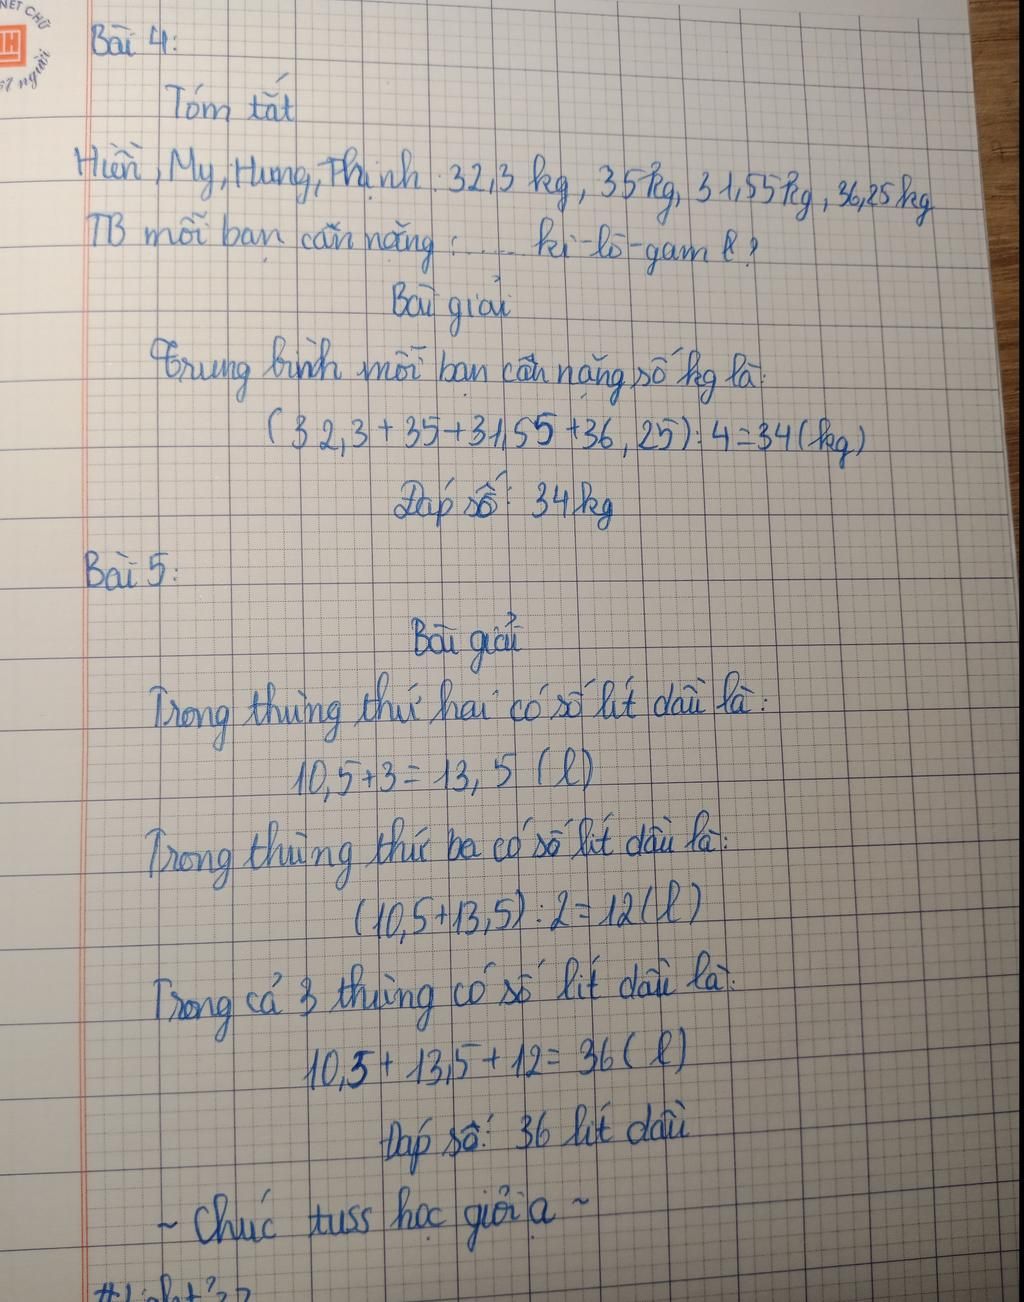 NÉT CHỮ
NH
người
Bài 4:
Tóm tắt
Hiền, My, Hưng, Thịnh: 32,3 kg, 35kg, 31,55kg, 36,25kg
TB mỗi bạn cân nặng: ..... ki-lô-gam ?
Bài giải
Trung bình mỗi bạn cân nặng số kg là:
(32,3 + 35 + 31,55 + 36,25) : 4 = 34 (kg)
Đáp số: 34kg
Bài 5:
Bài giải
Trong thùng thứ hai có số lít dầu là:
10,5 + 3 = 13,5 (l)
Trong thùng thứ ba có số lít dầu là:
(10,5 + 13,5) : 2 = 12 (l)
Trong cả 3 thùng có số lít dầu là:
10,5 + 13,5 + 12 = 36 (l)
Đáp số: 36 lít dầu
~ Chúc tuss học giỏi ạ ~